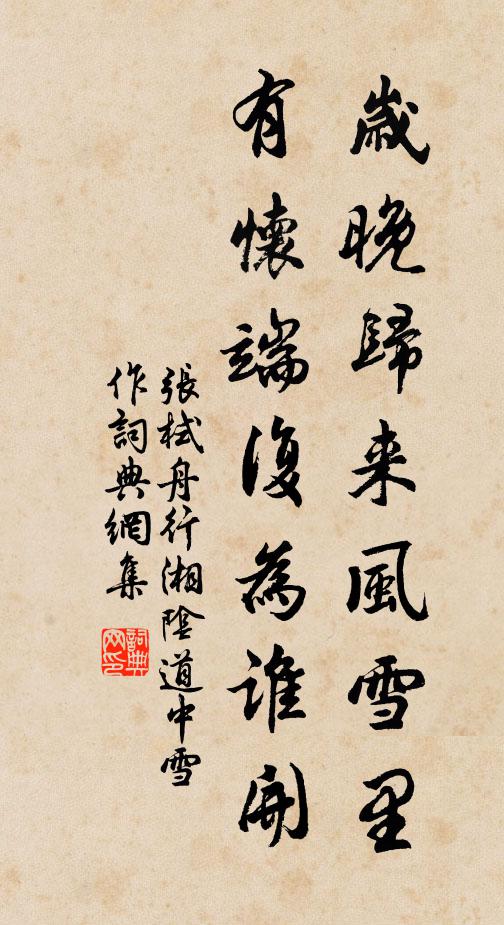 歲晚歸来風雪里
有懷端復為誰開
張栻舟行湘陰道中雪
作詞典網集
詞典网印